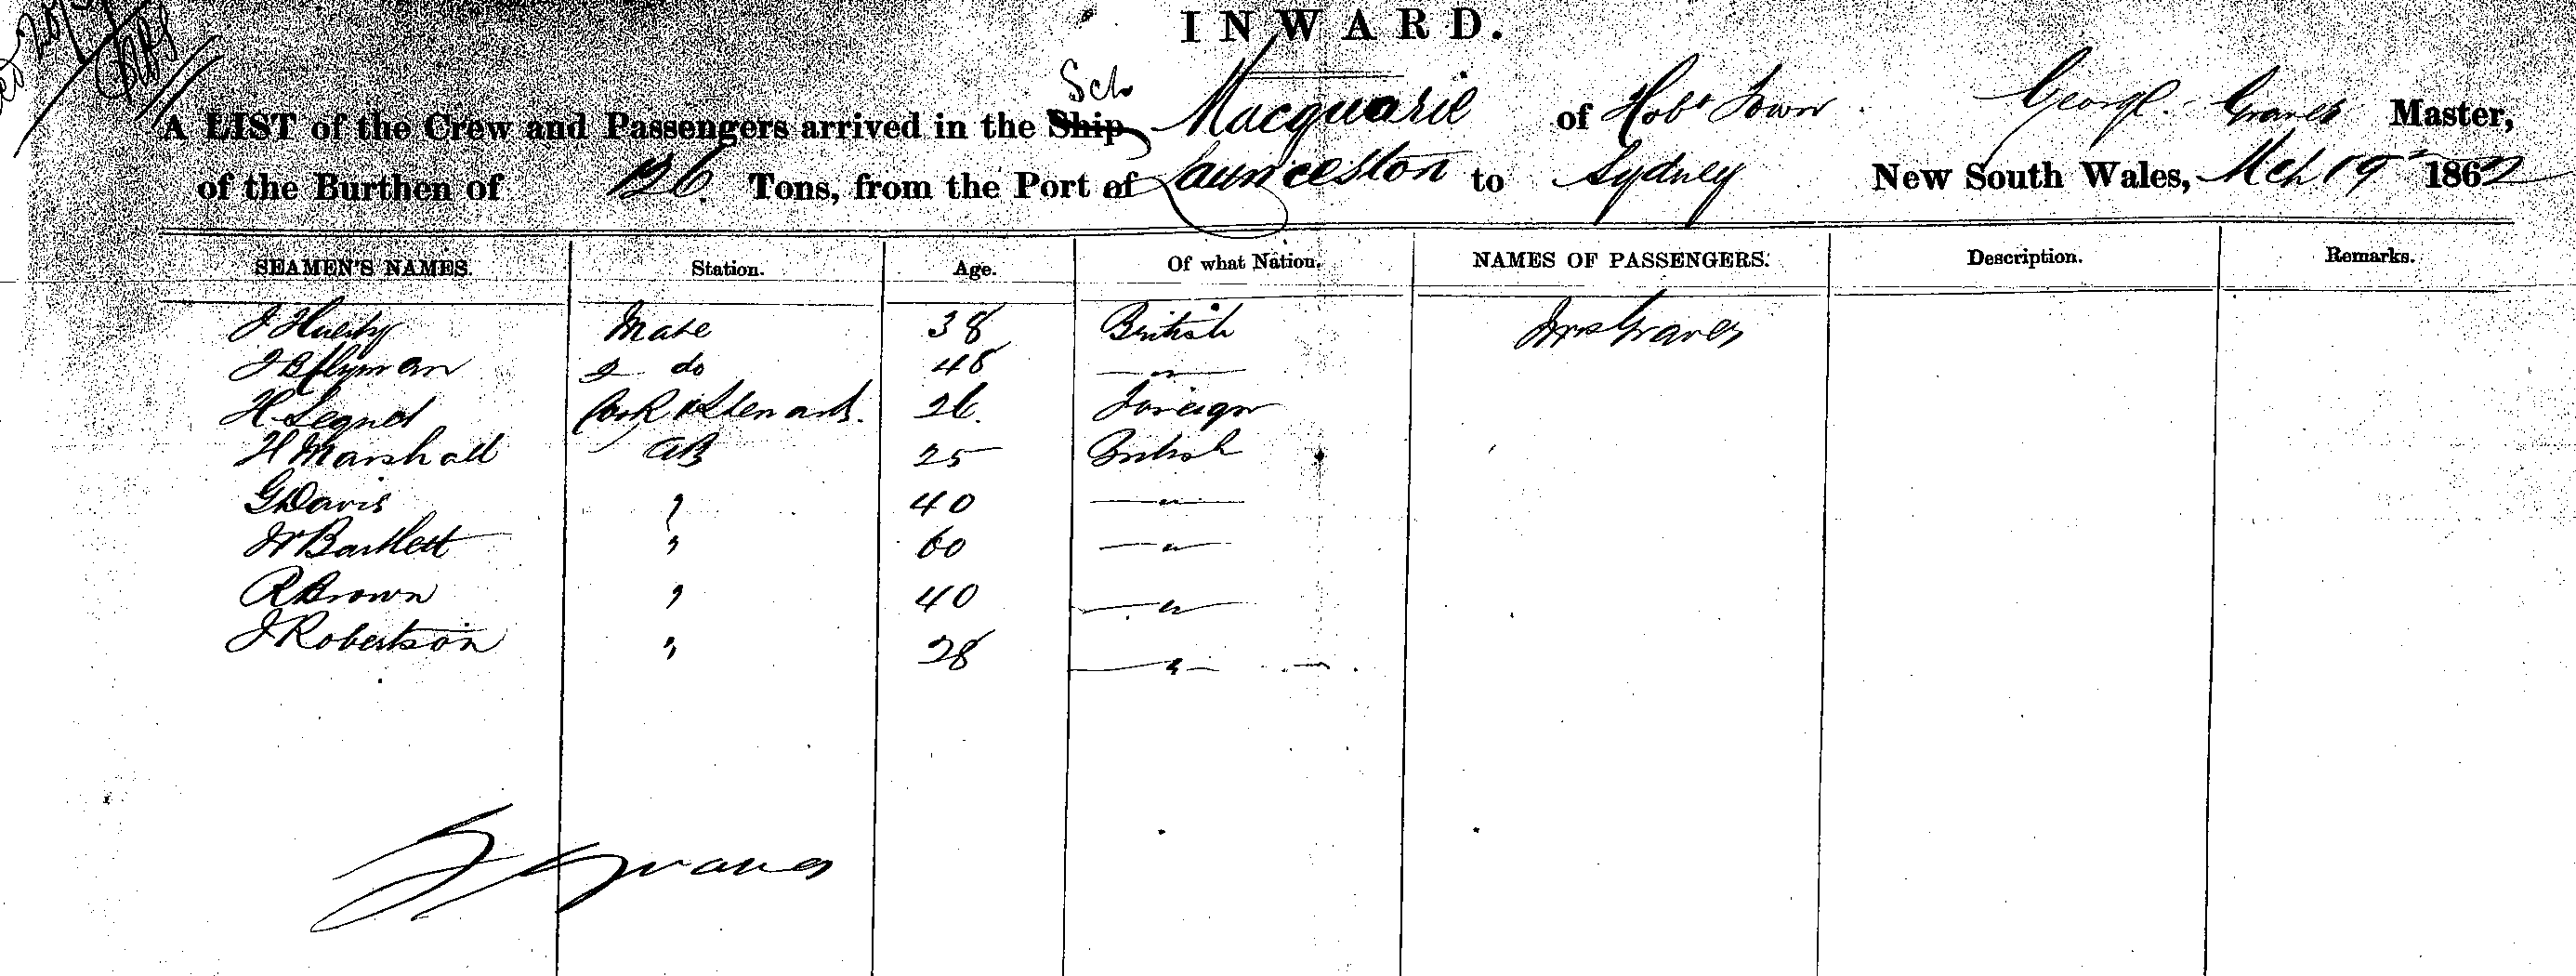 INWARD.
Sch
A LIST of the Crew and Passengers arrived in the Ship Macquarie of Hobt Town George Graves Master,
of the Burthen of 126 Tons, from the Port of Launceston to Sydney New South Wales, Mch 19 1862
SEAMEN'S NAMES. Station. Age. Of what Nation. NAMES OF PASSENGERS. Description. Remarks.
J Mate 38 British Mrs Graves
J B Hyman 2 do 48 — " —
H Legnd Cook & Steward. 26. Foreign
H Marshall AB 25 British
G Davis " 40 — " —
W Bartlett " 60 — " —
R Brown " 40 — " —
J Robertson " 28 — " —
G Graves